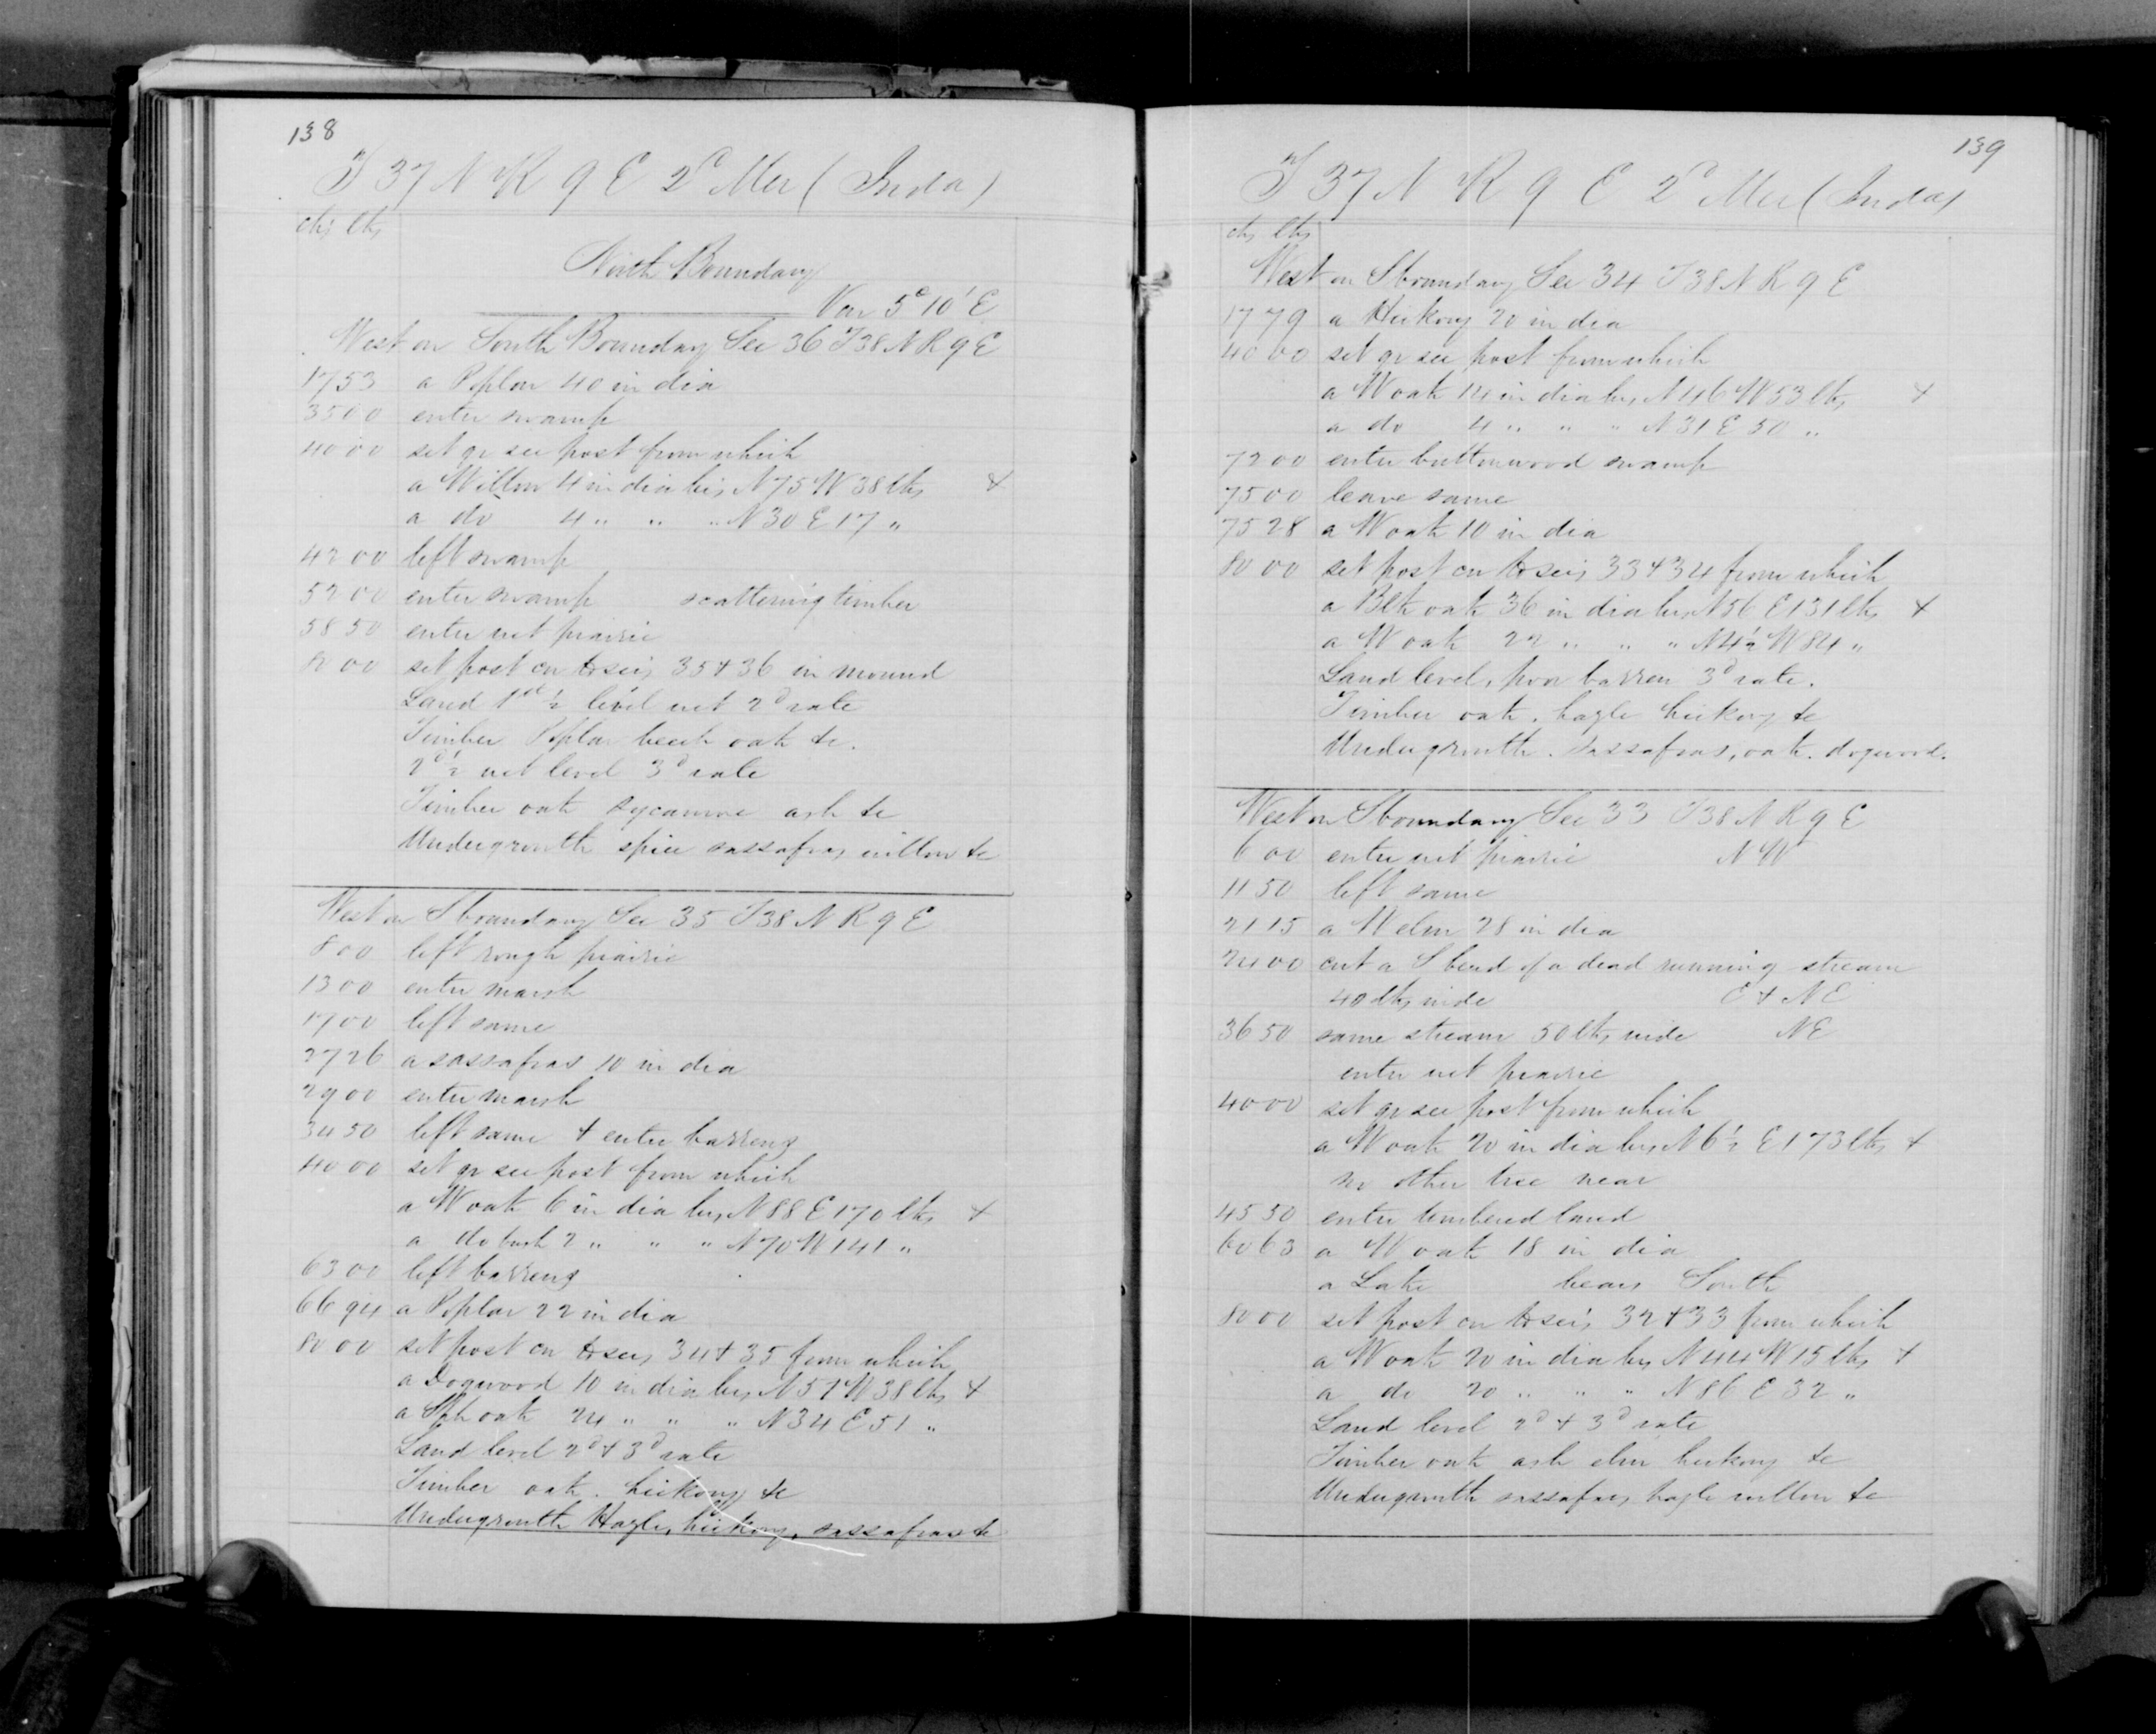 138
T 37 N R 9 E 2d Mer (Inda)
chs lks
North Boundary
Var 5° 10' E
West on South Boundary Sec 36 T38 N R 9 E
17 53 a Poplar 40 in dia
35 00 enter swamp
40 00 set qr sec post from which
a Willow 4 in dia brs N 75 W 38 lks &
a do 4 " " " N 30 E 17 "
42 00 left swamp
52 00 enter swamp scattering timber
58 50 enter wet prairie
80 00 set post cor to secs 35 & 36 in mound
Land 1st ½ level wet 2d rate
Timber Poplar beech oak &c.
2d ½ wet level 3d rate
Timber oak sycamore ash &c
Undergrowth spice sassafras willow &c
West on S boundary Sec 35 T38 N R 9 E
8 00 left rough prairie
13 00 enter marsh
17 00 left same
27 26 a sassafras 10 in dia
29 00 enter marsh
34 50 left same & enter barrens
40 00 set qr sec post from which
a W oak 6 in dia brs N 88 E 170 lks &
a do bush 2 " " " N 70 W 141 "
63 00 left barrens
66 94 a Poplar 22 in dia
80 00 set post cor to secs 34 & 35 from which
a Dogwood 10 in dia brs N 52 W 38 lks &
a oak 24 " " " N 34 E 51 "
Land level 2d & 3d rate
Timber oak. hickory &c
Undergrowth Hazle, hickory, sassafras &c
139
T 37 N R 9 E 2d Mer (Inda)
chs lks
West on S boundary Sec 34 T38 N R 9 E
17 79 a Hickory 20 in dia
40 00 set qr sec post from which
a W oak 14 in dia brs N 46 W 53 lks &
a do 4 " " " N 31 E 50 "
72 00 enter buttonwood swamp
75 00 leave same
75 28 a W oak 10 in dia
80 00 set post cor to secs 33 & 34 from which
a Blk oak 36 in dia brs N 56 E 131 lks &
a W oak 22 " " " N 4½ W 84 "
Land level, poor barren 3d rate.
Timber oak. hazle hickory &c
Undergrowth. sassafras, oak. dogwood.
West on S boundary Sec 33 T38 N R 9 E
6 00 enter wet prairie N W
11 50 left same
21 15 a W elm 28 in dia
24 00 cut a S bend of a dead running stream
40 lks wide E & N E
36 50 same stream 50 lks wide N E
enter wet prairie
40 00 set qr sec post from which
a W oak 20 in dia brs N 6½ E 173 lks &
no other tree near
45 50 enter timbered land
60 63 a W oak 18 in dia
a Lake bears South
80 00 set post cor to secs 32 & 33 from which
a W oak 20 in dia brs N 44 W 15 lks &
a do 20 " " " N 86 E 32 "
Land level 2d & 3d rate
Timber oak ash elm hickory &c
Undergrowth sassafras hazle willow &c